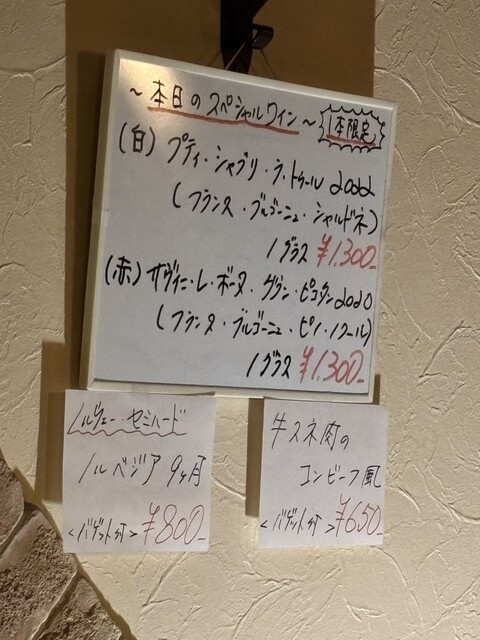 ~本日のスペシャルワイン~
1本限定
(白) プティ・シャブリ・ラ・トゥール 2022
(フランス・ブルゴーニュ・シャルドネ)
1グラス ¥1,300-
(赤) サヴィニ・レ・ボーヌ・グラン・ピコタン 2020
(フランス・ブルゴーニュ・ピノ・ノワール)
1グラス ¥1,300-
ノルウェー・セミハード
ノルベジア 9ヶ月
<バゲット付> ¥800-
牛スネ肉の
コンビーフ風
<バゲット付> ¥650-